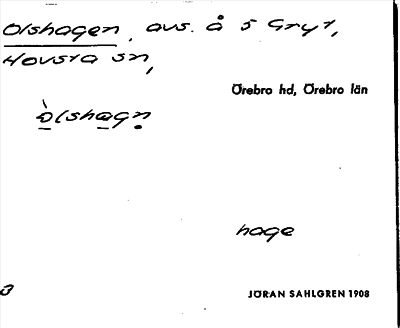 Olshagen, avs. å S Gryt,
Hovsta sn,
Örebro hd, Örebro län
òlshagn
hage
JÖRAN SAHLGREN 1908